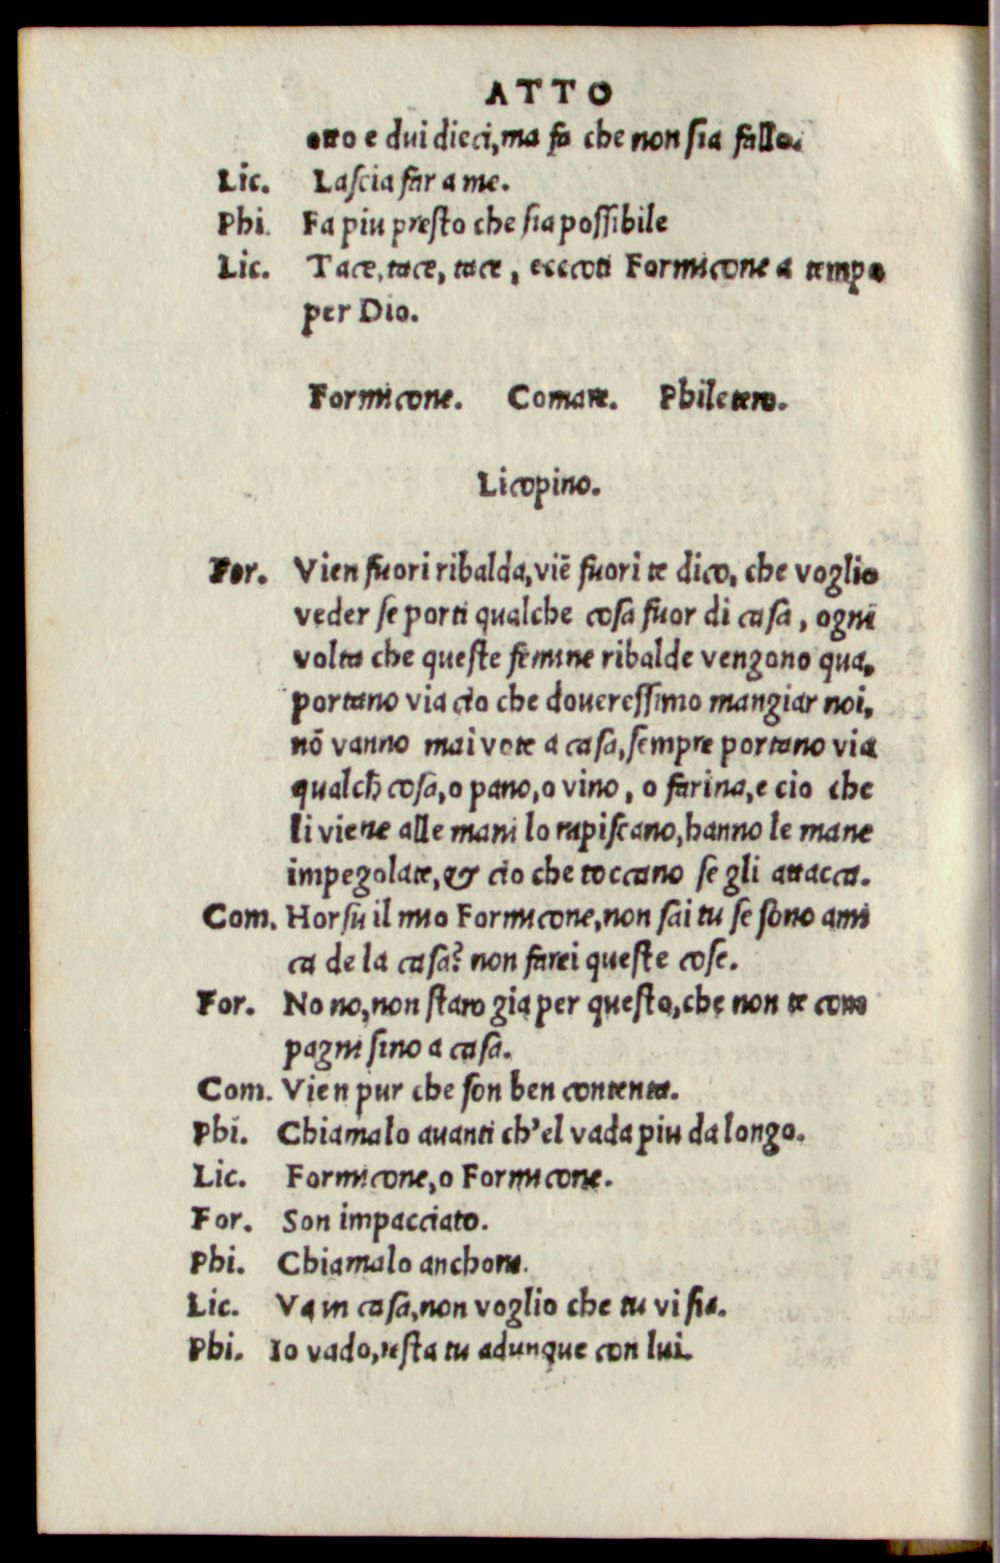 ATTO
otto e dui dieci, ma fa che non ſia fallo.
Lic. Laſcia far a me.
Phi. Fa piu preſto che ſia poſſibile
Lic. Tace, tace, tace, ececoti Formicone a tempo
per Dio.
Formicone. Comare. Philetero.
Licopino.
For. Vien fuori ribalda, viē fuori te dico, che voglio
veder ſe porti qualche coſa fuor di caſa, ogni
volta che queſte femine ribalde vengono qua,
portano via cio che doueresſimo mangiar noi,
nō vanno mai vote a caſa, ſempre portano via
qualch̄ coſa, o pano, o vino, o farina, e cio che
li viene alle mani lo rapiſcano, hanno le mane
impegolate, & cio che toccano ſe gli attacca.
Com. Horſu il mio Formicone, non ſai tu ſe ſono ami
ca de la caſa? non farei queſte coſe.
For. No no, non ſtaro gia per queſto, che non te com
pagni ſino a caſa.
Com. Vien pur che ſon ben contenta.
Phi. Chiamalo auanti ch'el vada piu da longo.
Lic. Formicone, o Formicone.
For. Son impacciato.
Phi. Chiamalo anchora.
Lic. Va in caſa, non voglio che tu vi ſia.
Phi. Io vado, reſta tu adunque con lui.